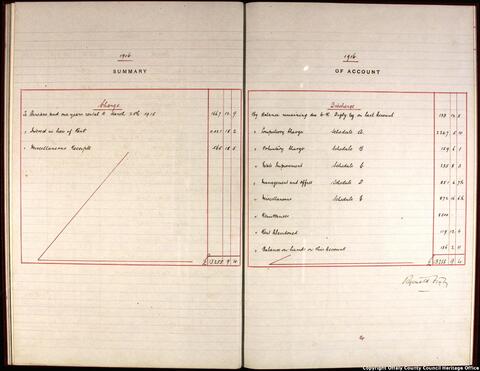 1916
SUMMARY
Charge
To Arrears and one years rental to March 25th 1916
" Interest in lieu of Rent
" Miscellaneous Receipts 565 18 5
£
1916
OF ACCOUNT
Discharge
By Balance remaining due to Digby Esq on last Account
" Compulsory Charge Schedule A 2267 5 10
" Voluntary Charge Schedule B 159 6 1
" Estate Improvement Schedule C
" Management and Offices Schedule D
" Miscellaneous Schedule E
" Remittances
" Rent Abandoned 119 12 4
" Balance on hands on this Account 156 2 11
£
Reginald Digby
Copyright Offaly County Council Heritage Office